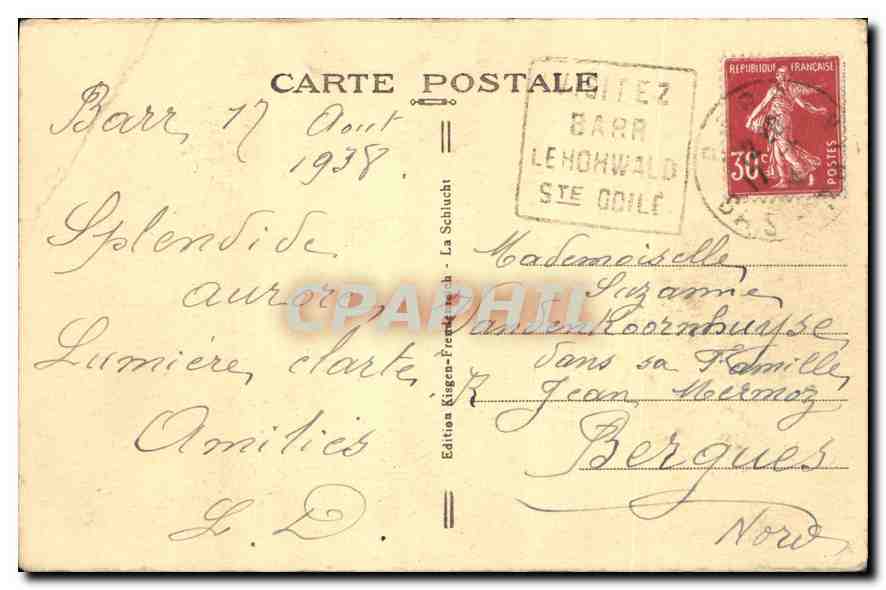 CARTE POSTALE
Barr, 17 Aout
1938
Splendide
aurore,
Lumière, clarté,
Amitiés
L. D.
Edition Kisgen-Fremderreich - La Schlucht
VISITEZ
BARR
LEHOHWALD
STE ODILE
REPUBLIQUE FRANÇAISE
30c
POSTES
BARR
BAS-RHIN
Mademoiselle
Suzanne
Vandenkoornhuyse
dans sa Famille,
R Jean Mermoz
Bergues
Nord
CPAPHIL